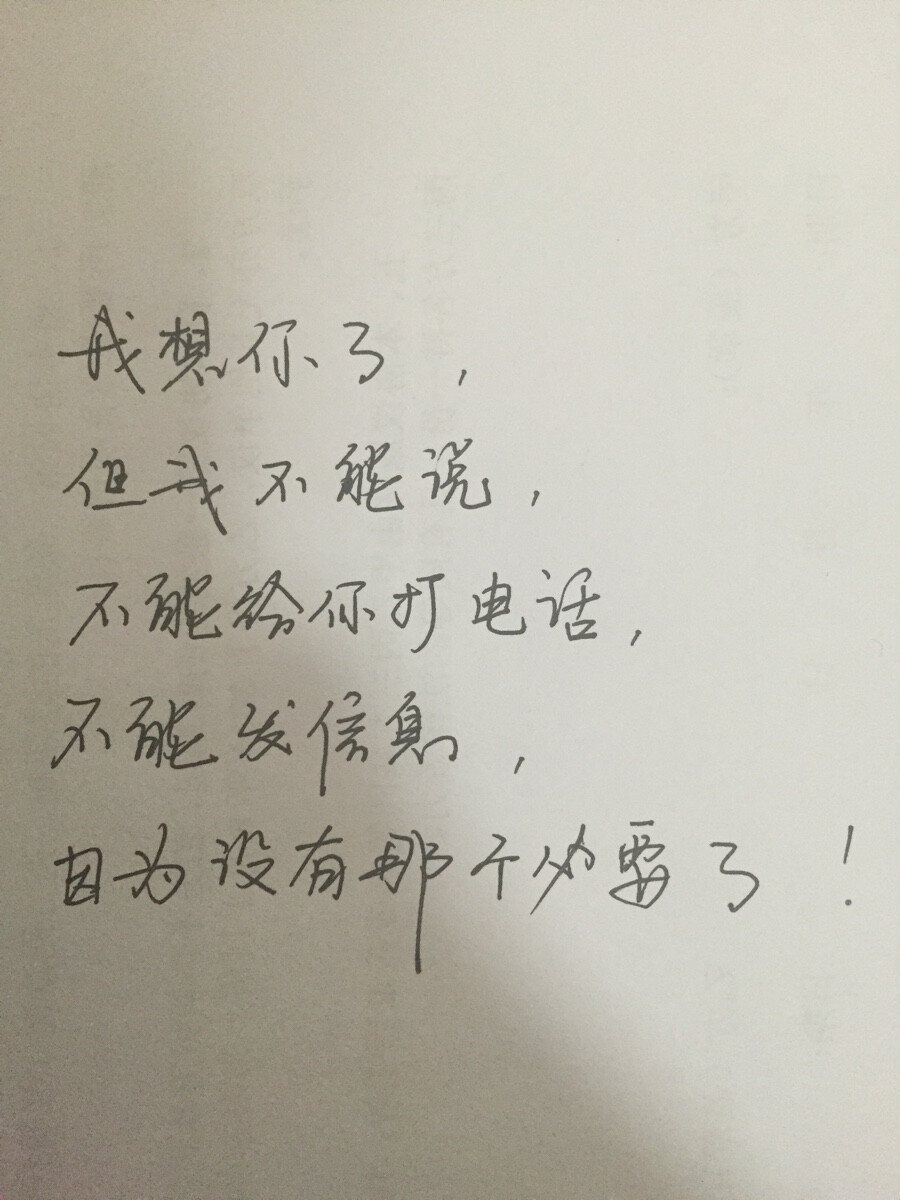 我想你了，
但我不能说，
不能给你打电话，
不能发信息，
因为没有那个必要了！